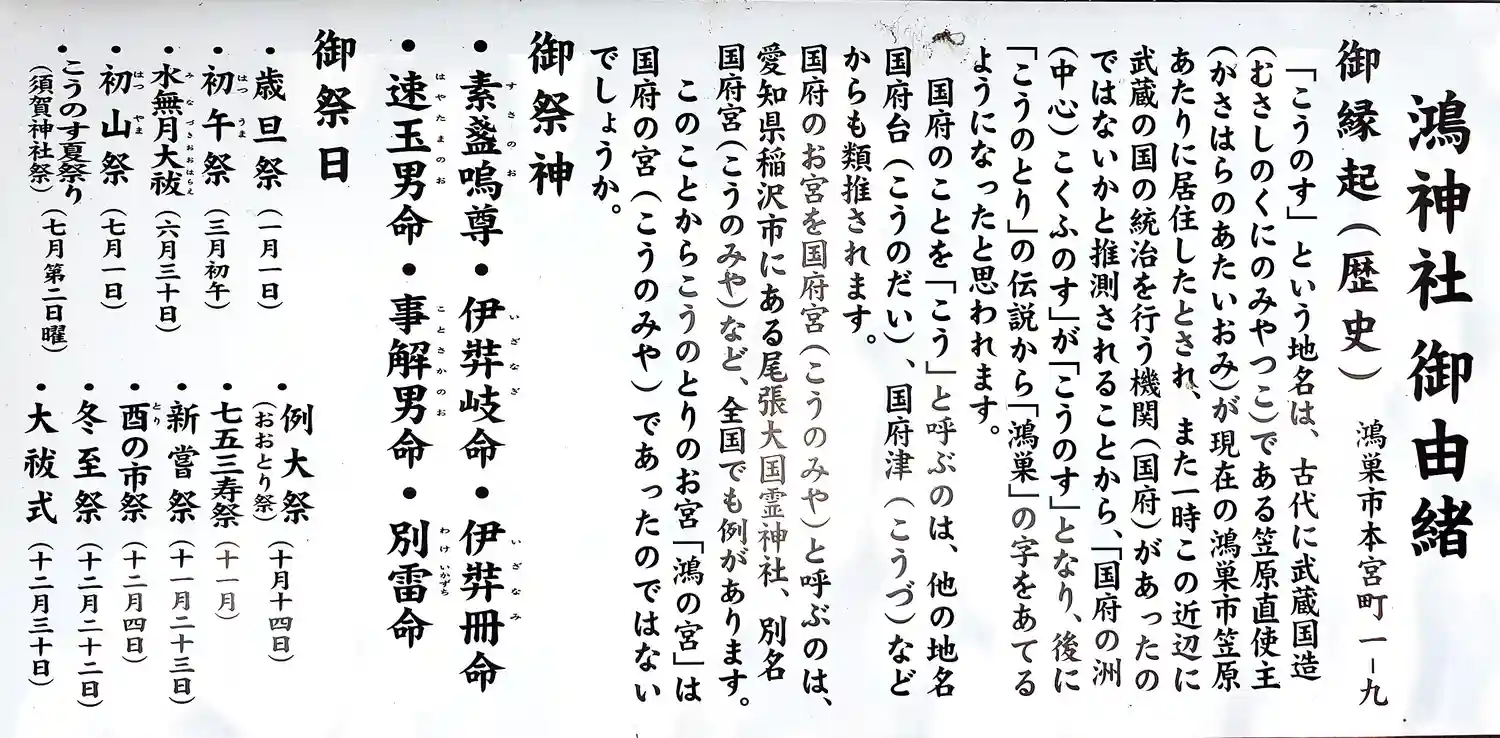 鴻神社 御由緒
御縁起(歴史) 鴻巣市本宮町一-九
「こうのす」という地名は、古代に武蔵国造
(むさしのくにのみやつこ)である笠原直使主
(かさはらのあたいおみ)が現在の鴻巣市笠原
あたりに居住したとされ、また一時この近辺に
武蔵の国の統治を行う機関(国府)があったの
ではないかと推測されることから、「国府の洲
(中心)こくふのす」が「こうのす」となり、後に
「こうのとり」の伝説から「鴻巣」の字をあてる
ようになったと思われます。
国府のことを「こう」と呼ぶのは、他の地名
国府台(こうのだい)、国府津(こうづ)など
からも類推されます。
国府のお宮を国府宮(こうのみや)と呼ぶのは、
愛知県稲沢市にある尾張大国霊神社、別名
国府宮(こうのみや)など、全国でも例があります。
このことからこうのとりのお宮「鴻の宮」は
国府の宮(こうのみや)であったのではない
でしょうか。
御祭神
•素盞嗚尊•伊弉岐命•伊弉冊命
すさのお いざなぎ いざなみ
•速玉男命•事解男命•別雷命
はやたまのお ことさかのお わけいかずち
御祭日
•歳旦祭(一月一日)
•初午祭(三月初午)
はつうま
•水無月大祓(六月三十日)
みなづきおおはらえ
•初山祭(七月一日)
はつやま
•こうのす夏祭り
(須賀神社祭)(七月第二日曜)
•例大祭
(おおとり祭)(十月十四日)
•七五三寿祭(十一月)
•新嘗祭(十一月二十三日)
•酉の市祭(十二月四日)
とり
•冬至祭(十二月二十二日)
•大祓式(十二月三十日)